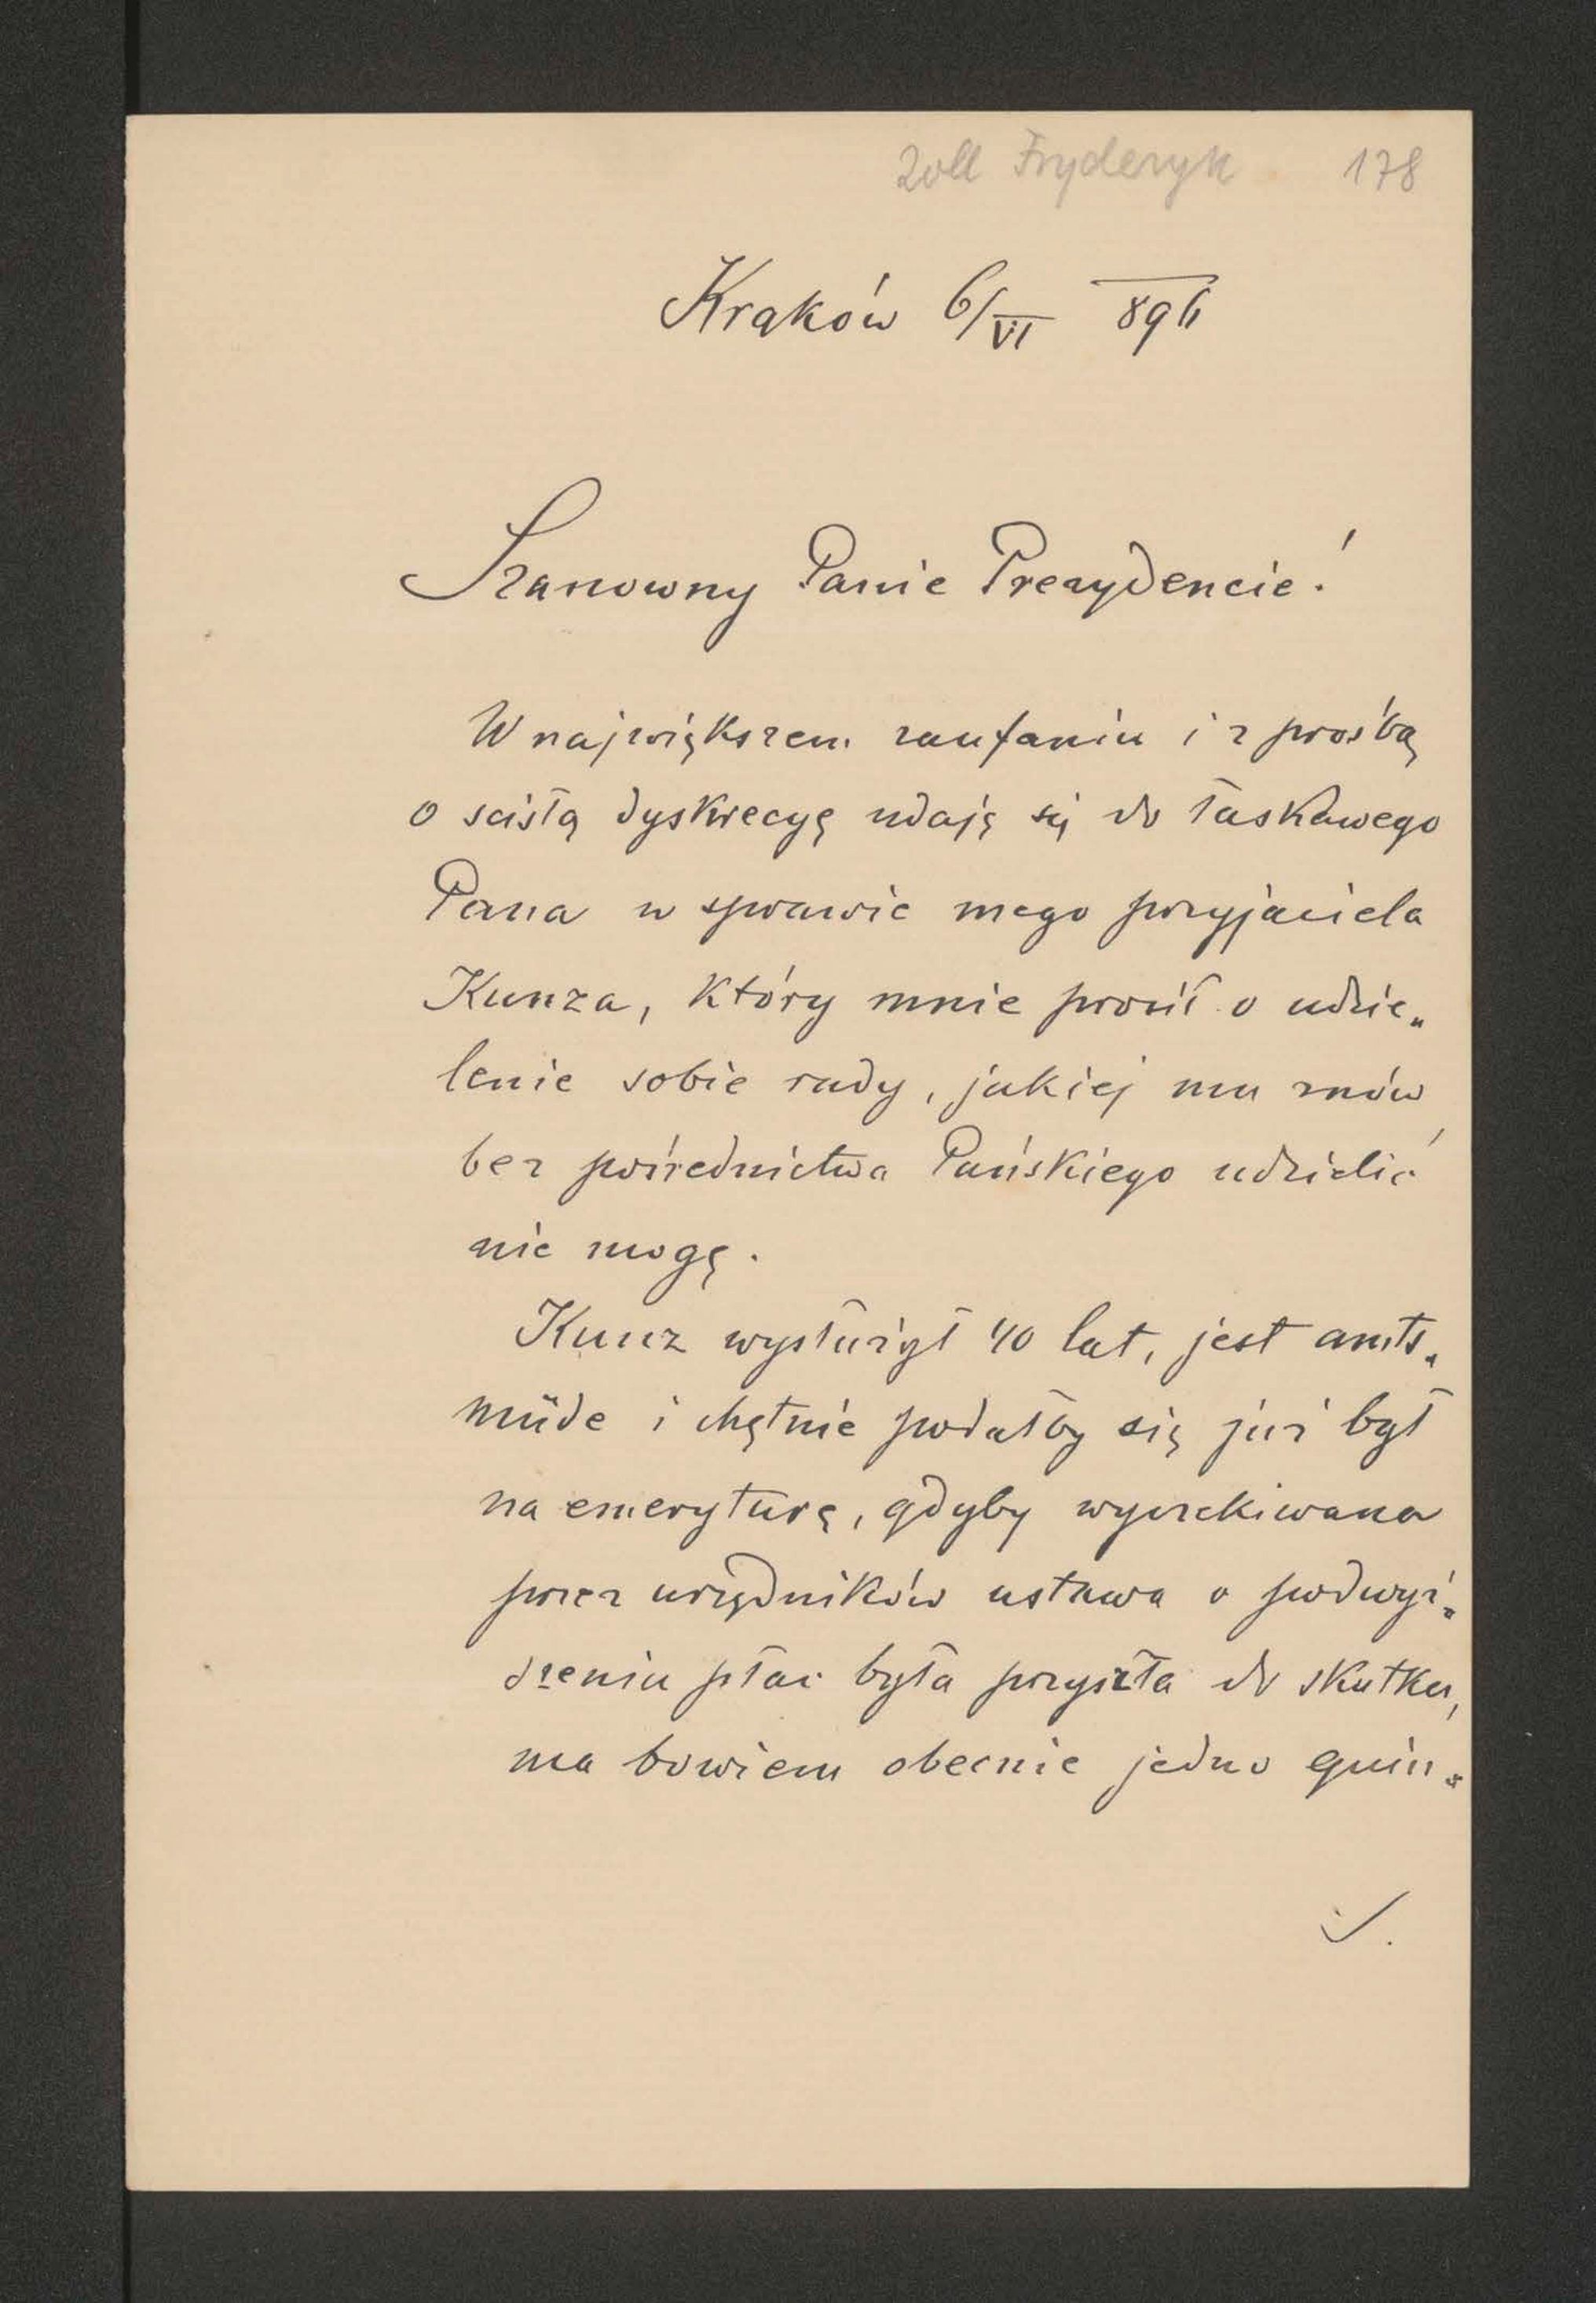 Zoll Fryderyk 178
Kraków 6/VI 896
Szanowny Panie Prezydencie!
W największem zaufaniu i z prośbą
o scisłą dyskrecyę udaję się do łaskawego
Pana w sprawie mego przyjaciela
Kunza, który mnie prosił o udzie„
lenie sobie rady, jakiej mu znów
bez pośrednictwa Pańskiego udzielić
nie mogę.
Kunz wysłużył 40 lat, jest amts„
müde i chętnie podałby się już był
na emeryturę, gdyby wyczekiwana
przez urzędników ustawa o podwyż„
szeniu płac była przyszła do skutku,
ma bowiem obecnie jedno quin„